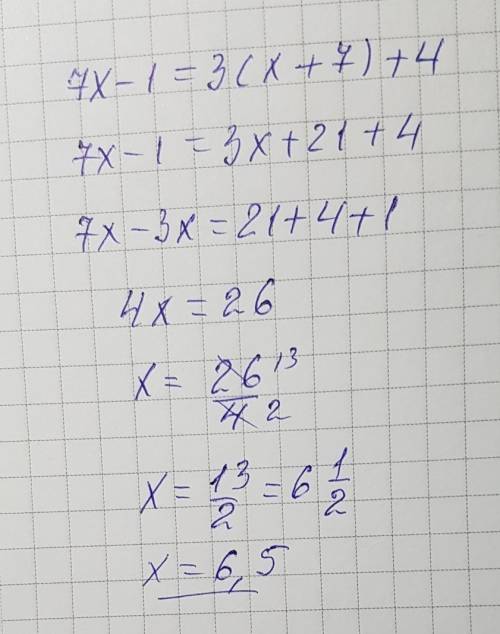 7x - 1 = 3(x + 7) + 4
7x - 1 = 3x + 21 + 4
7x - 3x = 21 + 4 + 1
4x = 26
x = 26/4 13/2
x = 13/2 = 6 1/2
x = 6,5